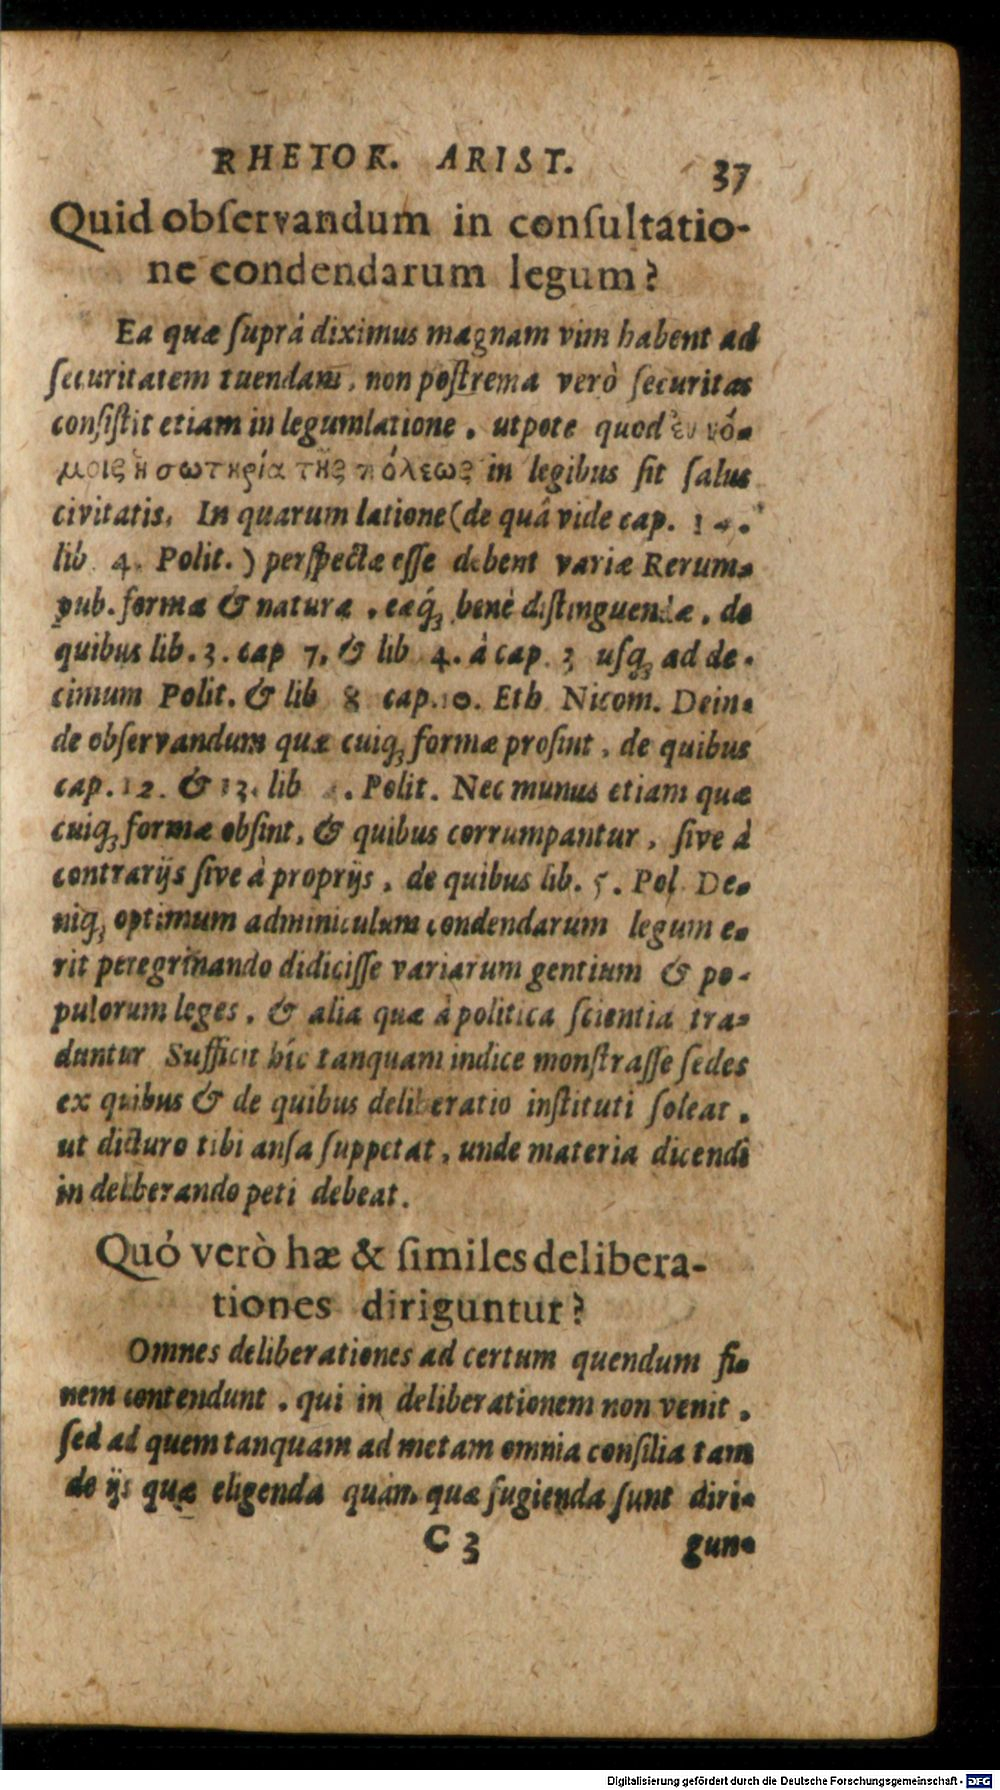 RHETOR. ARIST. 37
Quid obſervandum in conſultatio-
ne condendarum legum?
Ea quæ ſuprà diximus magnam vim habent ad
ſecuritatem tuendam, non poſtrema verò ſecuritas
conſiſtit etiam in legumlatione, utpote quod ἐν νό-
μοις ἡ σωτηρία τῆς πόλεως in legibus ſit ſalus
civitatis. In quarum latione (de quâ vide cap. 14.
lib. 4. Polit.) perſpectæ eſſe debent variæ Rerum-
pub. formæ & naturæ, eæq́; benè diſtinguendæ, de
quibus lib. 3. cap 7. & lib 4. à cap. 3 uſq; ad de-
cimum Polit. & lib 8 cap. 10. Eth Nicom. Dein-
de obſervandum quæ cuiq; formæ proſint, de quibus
cap. 12. & 13. lib . Polit. Nec munus etiam quæ
cuiq; formæ obſint, & quibus corrumpantur, ſive à
contrarijs ſive à proprijs, de quibus lib. 5. Pol De-
niq; optimum adminiculum condendarum legum e-
rit peregrinando didiciſſe variarum gentium & po-
pulorum leges, & alia quæ à politica ſcientia tra-
duntur Sufficit hîc tanquam indice monſtraſſe ſedes
ex quibus & de quibus deliberatio inſtituti ſoleat,
ut dicturo tibi anſa ſuppetat, unde materia dicendi
in deliberando peti debeat.
Quó verò hæ & ſimiles delibera-
tiones diriguntur?
Omnes deliberationes ad certum quendum fi-
nem contendunt, qui in deliberationem non venit,
ſed ad quem tanquam ad metam omnia conſilia tam
de ijs quæ eligenda quàm quæ fugienda ſunt diri-
C 3 gun-
Digitalisierung gefördert durch die Deutsche Forschungsgemeinschaft - DFG